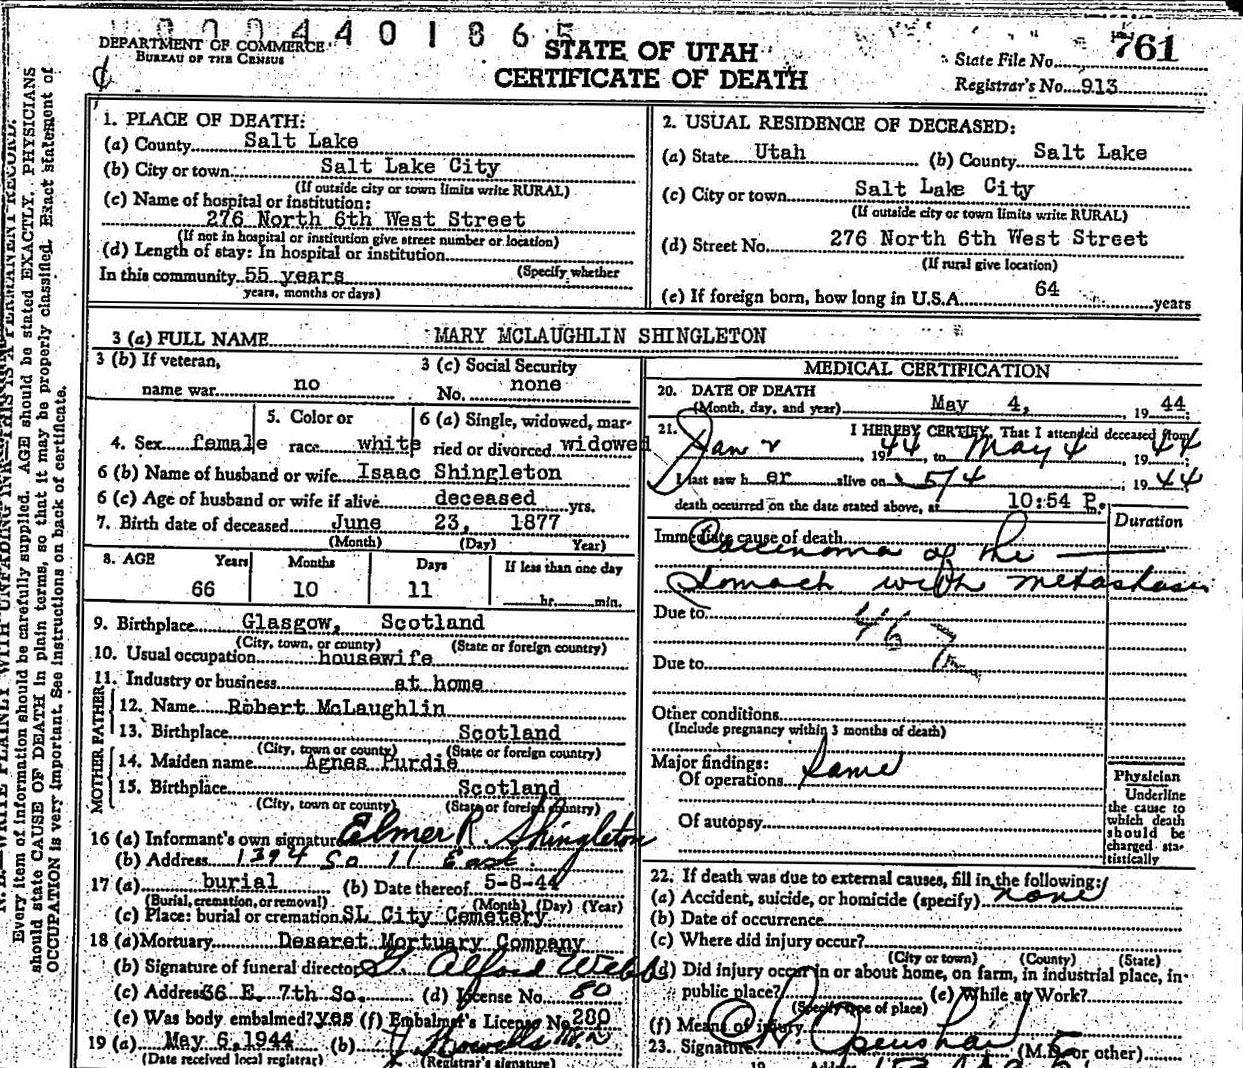 0 0 0 4 4 0 1 8 6 5
DEPARTMENT OF COMMERCE
BUREAU OF THE CENSUS
STATE OF UTAH
CERTIFICATE OF DEATH
State File No. 761
Registrar's No. 913
Every item of information should be carefully supplied. AGE should be stated EXACTLY. PHYSICIANS
should state CAUSE OF DEATH in plain terms, so that it may be properly classified. Exact statement of
OCCUPATION is very important. See instructions on back of certificate.
1. PLACE OF DEATH:
(a) County Salt Lake
(b) City or town Salt Lake City
(If outside city or town limits write RURAL)
(c) Name of hospital or institution:
276 North 6th West Street
(If not in hospital or institution give street number or location)
(d) Length of stay: In hospital or institution
(Specify whether
In this community 55 years
years, months or days)
2. USUAL RESIDENCE OF DECEASED:
(a) State Utah (b) County Salt Lake
(c) City or town Salt Lake City
(If outside city or town limits write RURAL)
(d) Street No. 276 North 6th West Street
(If rural give location)
(e) If foreign born, how long in U.S.A. 64 years
3 (a) FULL NAME MARY MCLAUGHLIN SHINGLETON
3 (b) If veteran,
name war no
3 (c) Social Security
No. none
4. Sex female
5. Color or
race white
6 (a) Single, widowed, mar-
ried or divorced widowed
6 (b) Name of husband or wife Isaac Shingleton
6 (c) Age of husband or wife if alive deceased yrs.
7. Birth date of deceased June 23, 1877
(Month) (Day) Year)
8. AGE Years Months Days If less than one day
66 10 11 hr. min.
9. Birthplace Glasgow, Scotland
(City, town, or county) (State or foreign country)
10. Usual occupation housewife
11. Industry or business at home
FATHER
12. Name Robert McLaughlin
13. Birthplace Scotland
(City, town or county) (State or foreign country)
MOTHER
14. Maiden name Agnes Purdie
15. Birthplace Scotland
(City, town or county) (State or foreign country)
16 (a) Informant's own signature Elmer R. Shingleton
(b) Address 1394 So 11 East
17 (a) burial (b) Date thereof 5-8-44
(Burial, cremation, or removal) (Month) (Day) (Year)
(c) Place: burial or cremation SL City Cemetery
18 (a) Mortuary Deseret Mortuary Company
(b) Signature of funeral director G. Alford Webb
(c) Address 36 E. 7th So. (d) License No. 80
(e) Was body embalmed? yes (f) Embalmer's License No. 280
19 (a) May 6, 1944 (b)
(Date received local registrar) (Registrar's signature)
MEDICAL CERTIFICATION
20. DATE OF DEATH
(Month, day, and year) May 4, 19 44
21. I HEREBY CERTIFY, That I attended deceased from
Jan 2 19 44 to May 4 19 44
I last saw h er alive on 5/4 19 44
death occurred on the date stated above, at 10:54 P. m.
Duration
Immediate cause of death
Carcinoma of the
stomach with metastasis
Due to 46
Due to
Other conditions
(Include pregnancy within 3 months of death)
Major findings:
Of operations Same
Of autopsy
Physician
Underline
the cause to
which death
should be
charged sta-
tistically
22. If death was due to external causes, fill in the following:
(a) Accident, suicide, or homicide (specify) none
(b) Date of occurrence
(c) Where did injury occur?
(City or town) (County) (State)
(d) Did injury occur in or about home, on farm, in industrial place, in
public place? (e) While at Work?
(Specify type of place)
(f) Means of injury
23. Signature (M.D. or other)